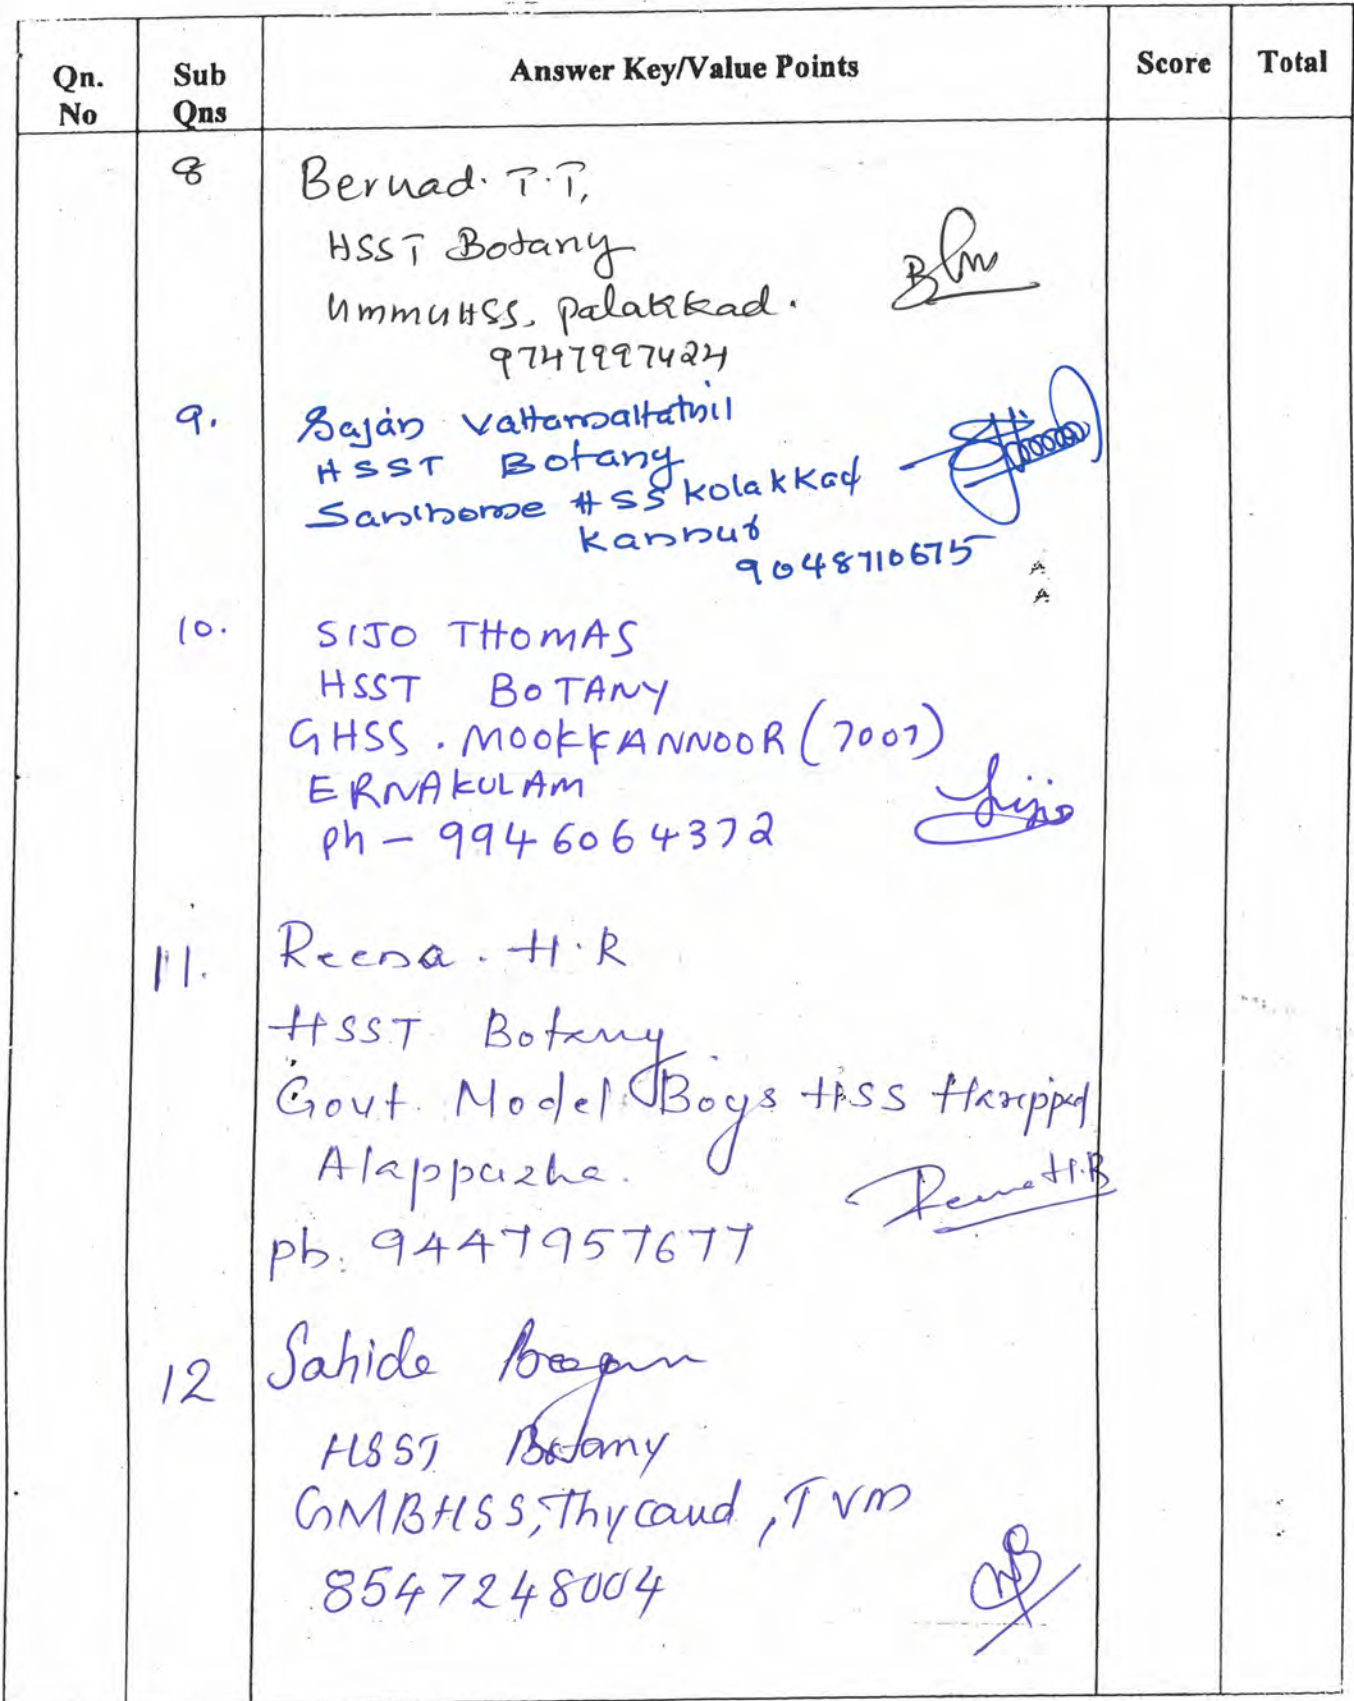 Qn. No Sub Qns Answer Key/Value Points Score Total
8 Bernad. T.T,
HSST Botany
UmmuHSS, Palakkad.
9747997424
9. Sajan
HSST Botany
Santhome HSS Kolakkad
Kannur
9048710675
10. SIJO THOMAS
HSST BOTANY
GHSS. MOOKKANNOOR (7007)
ERNAKULAM
Ph - 9946064372
Sijo
11. Reena. H.R
HSST Botany
Govt. Model Boys HSS Harippad
Alappuzha.
Reena H.R
ph: 9447957677
12 Sahida Begum
HSST Botany
GMBHSS, Thycaud, TVM
8547248004